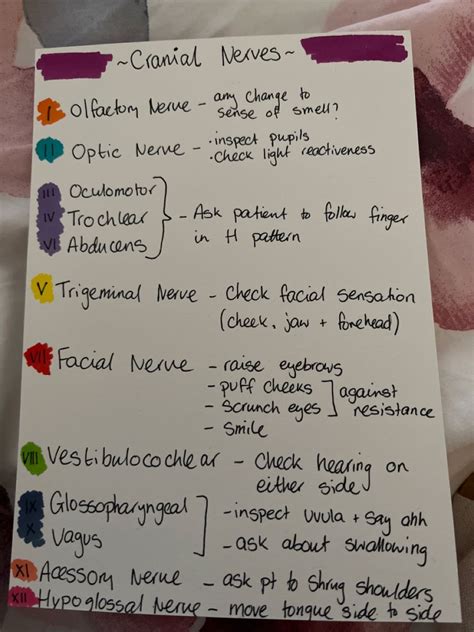 ~Cranial Nerves~
I Olfactory Nerve - any change to
sense of smell?
II Optic Nerve - • inspect pupils
• check light reactiveness
III Oculomotor
IV Trochlear
VI Abducens
- Ask patient to follow finger
in H pattern
V Trigeminal Nerve - Check facial sensation
(cheek, jaw + forehead)
VII Facial Nerve - raise eyebrows
- puff cheeks
- scrunch eyes
against
resistance
- smile
VIII Vestibulocochlear - Check hearing on
either side
IX Glossopharyngeal
X Vagus
- inspect uvula + say ahh
- ask about swallowing
XI Acessory Nerve - ask pt to shrug shoulders
XII Hypoglossal Nerve - move tongue side to side